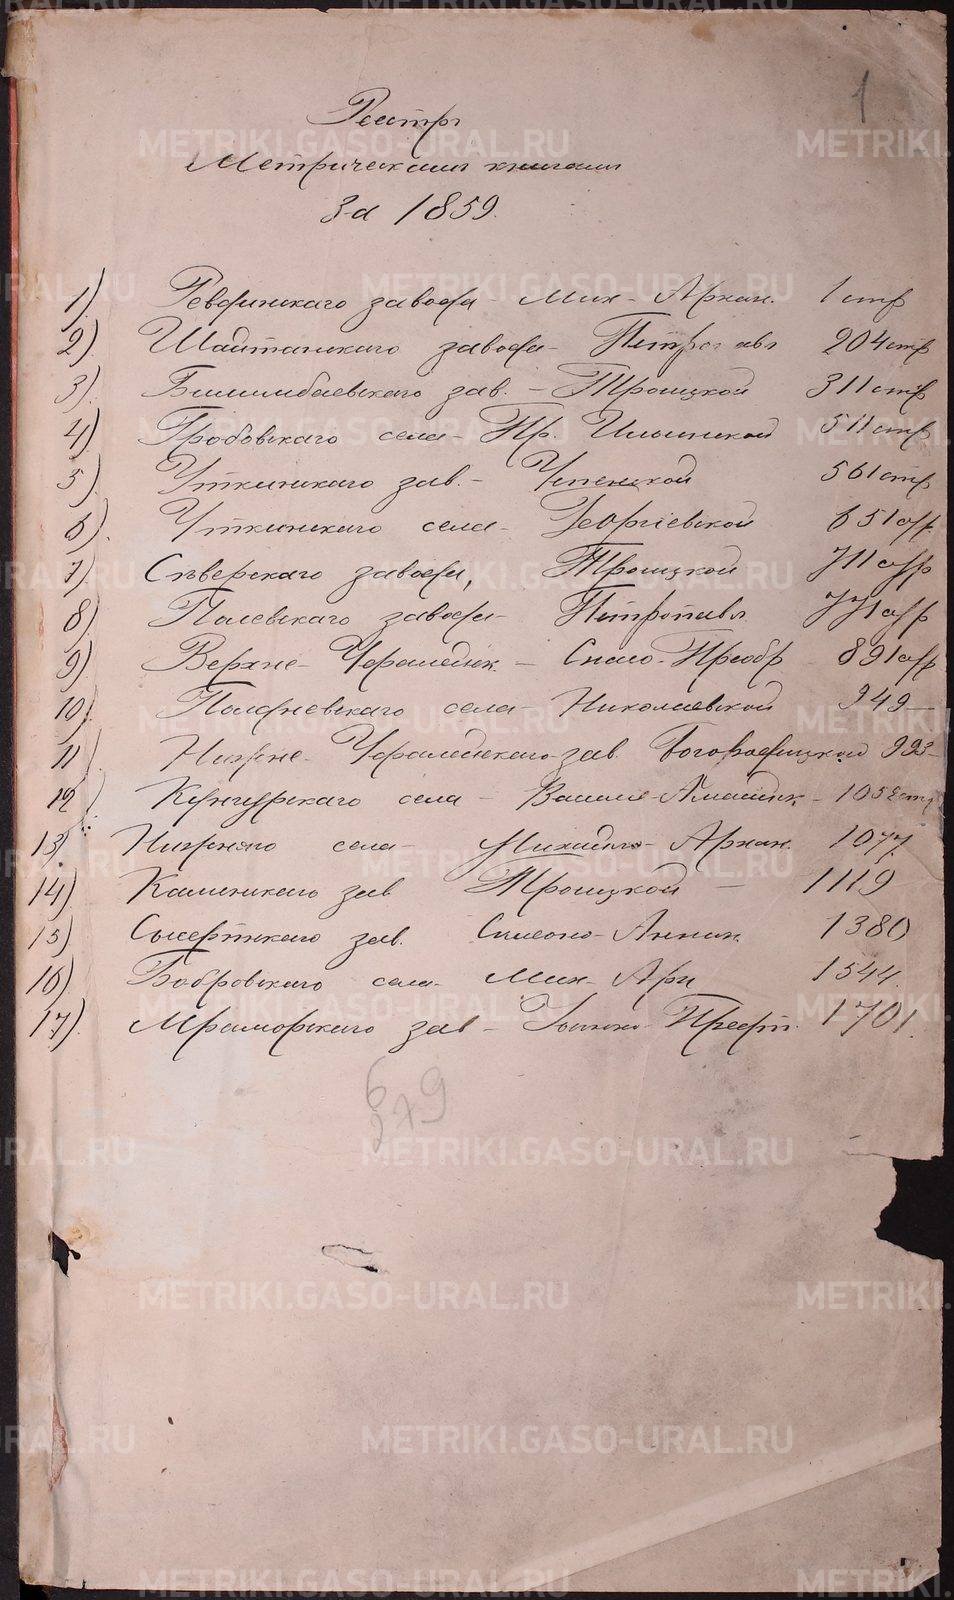 1
Реестр
Метрическимъ книгамъ
За 1859.
1) Ревдинскаго завода - Мих - Архан. 1 стр
2) Шайтанскаго завода - Петропавл 204 стр
3) Билимбаевскаго зав. - Троицкой 311 стр
4) Гробовскаго села - Пр. Ильинской 511 стр
5) Уткинскаго зав. - Успенской 561 стр
6) Уткинскаго села - Георгіевской 651 стр
7) Сѣверскаго завода, Троицкой 711 стр
8) Полевскаго завода - Петропавл 771 стр
9) Верхне - Уфалейск. - Спасо - Преобр 891 стр
10) Полдневскаго села - Николаевской 949 —
11) Нижне - Уфалейскаго зав. Богородицкой 993 —
12) Кунгурскаго села - 1052 стр
13) села - Михайло - Архан. 1077
14) Каслинскаго зав Троицкой — 1119
15) Сысертскаго зав. Симеоно - Аннин. 1380
16) Бобровскаго села - Мих - Арх 1544.
17) Мраморскаго зав - 1701.
METRIKI.GASO-URAL.RU